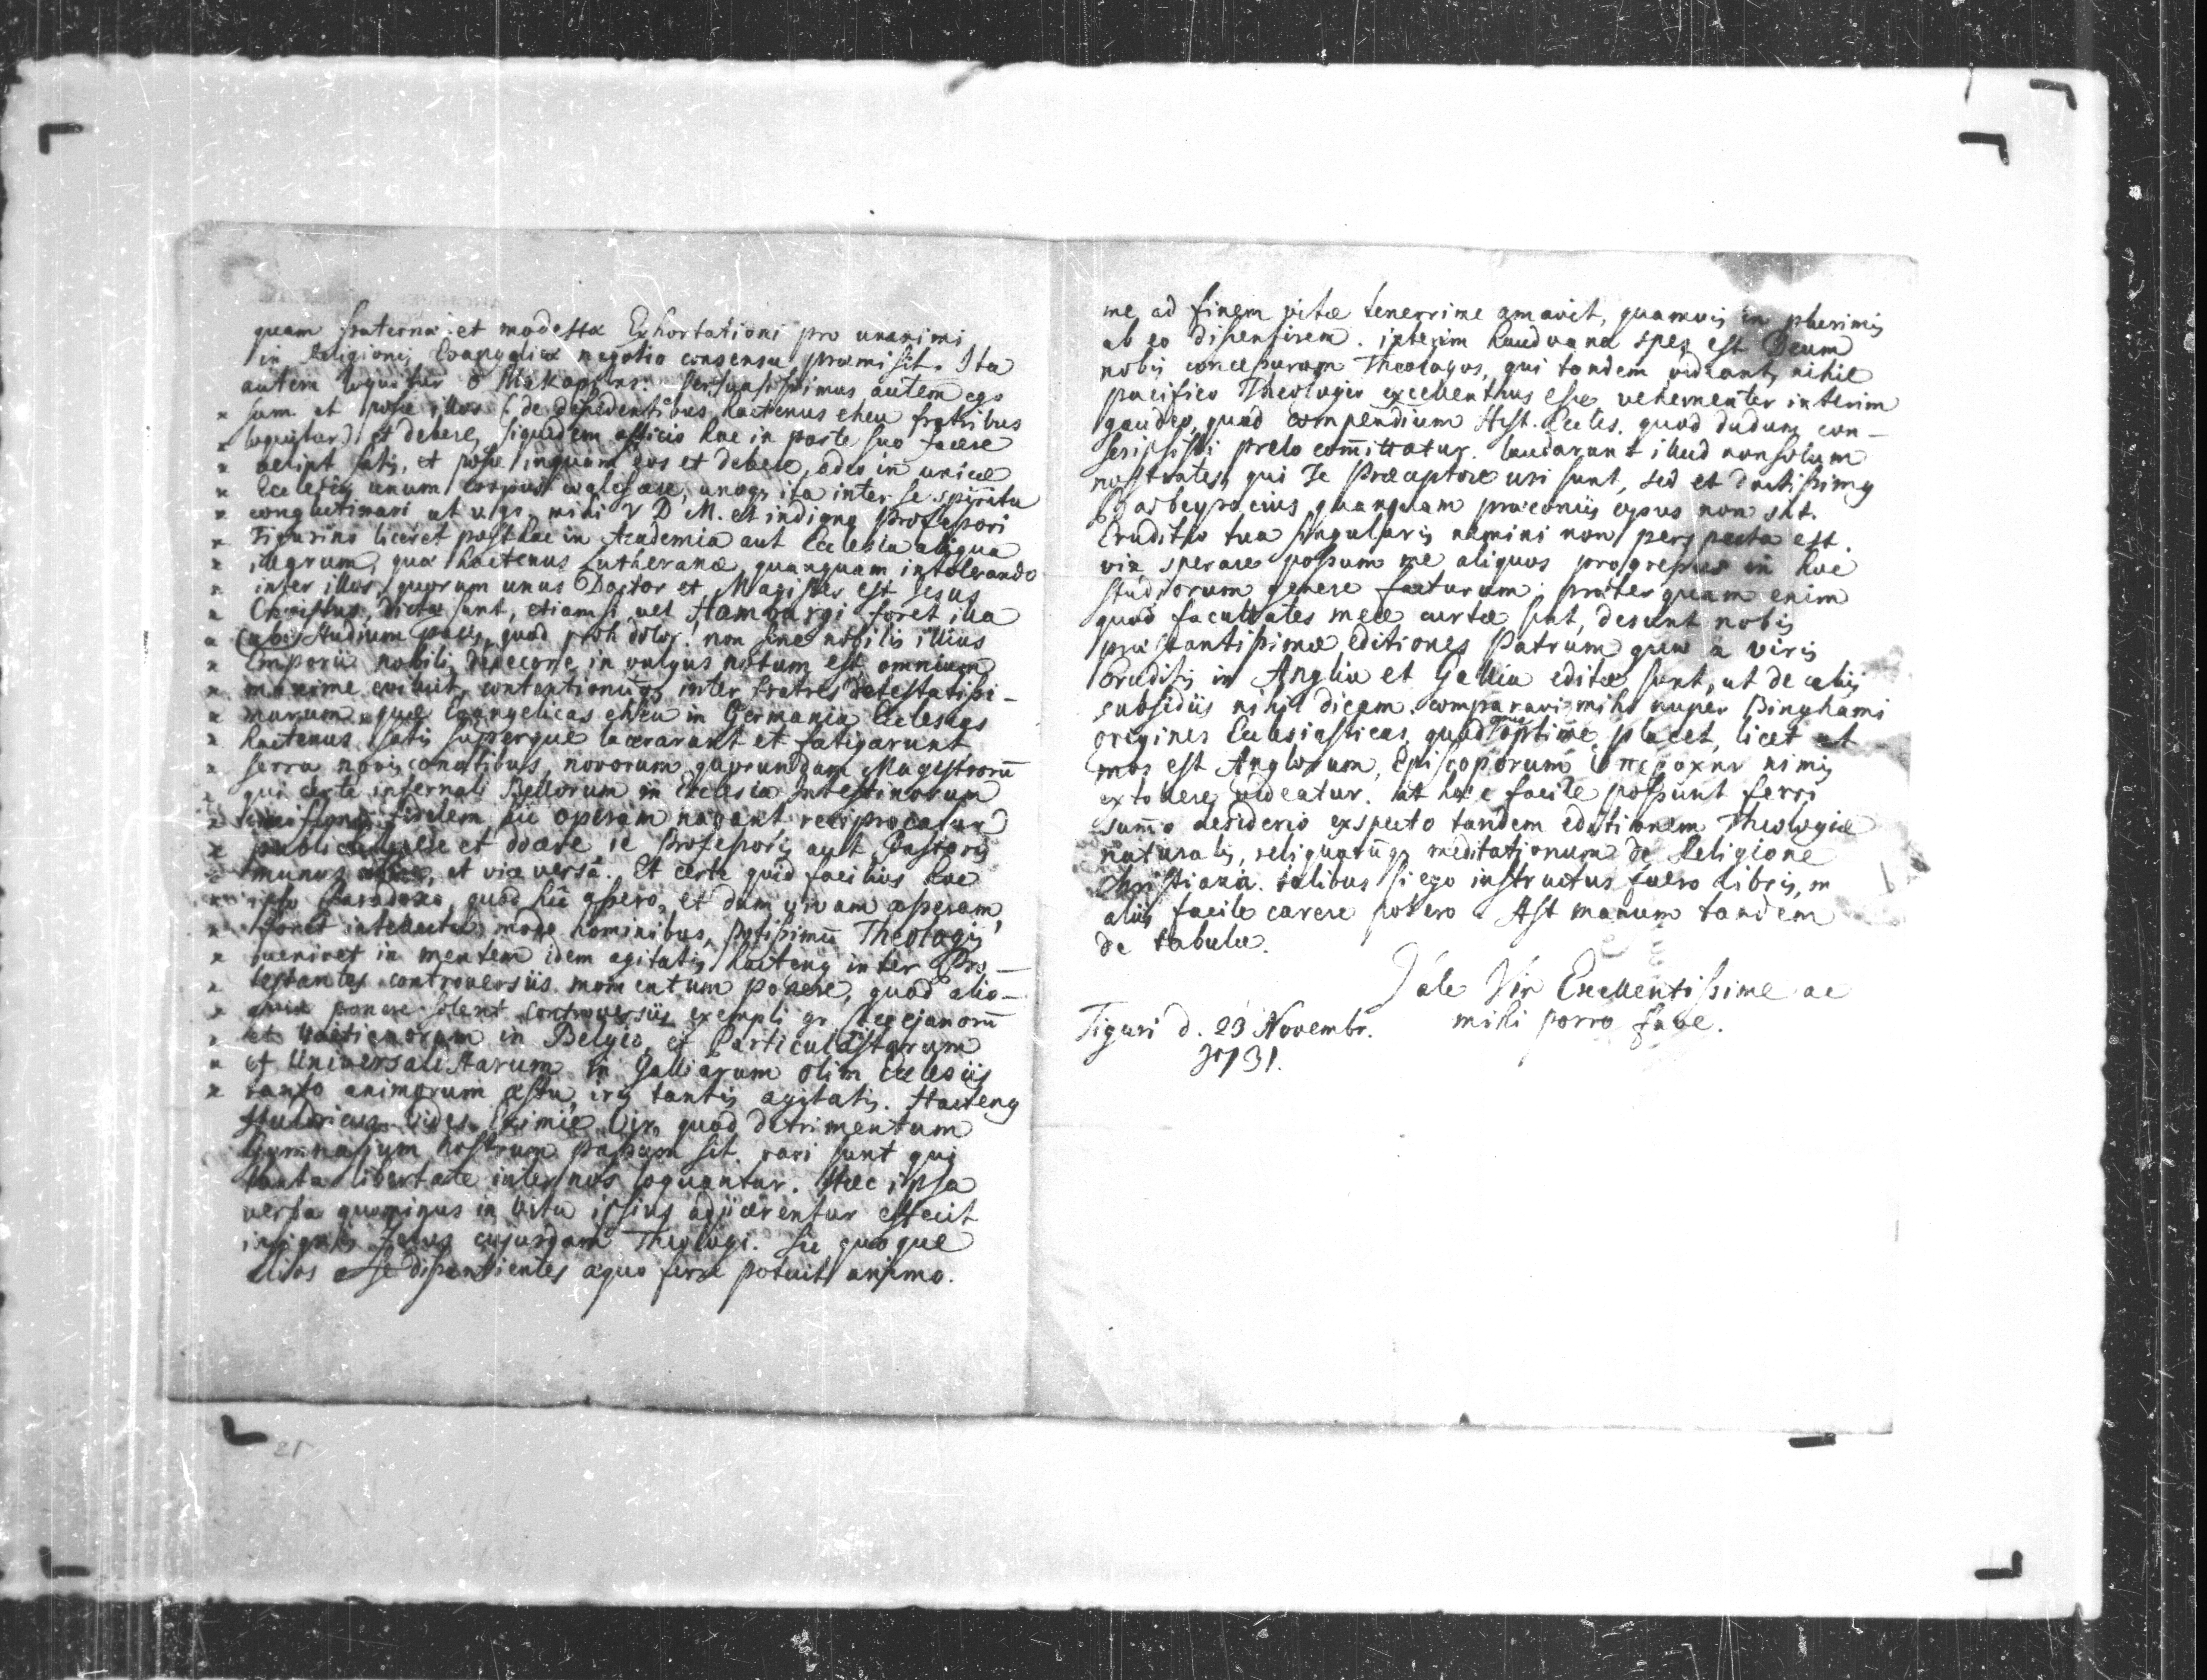 quam fraternæ et modestæ Exhortationi pro unanimi
in Religionis Evangelicæ negotio consensu præmisit. Ita
autem loquitur ὁ Μακαρίτης: Persuasissimus autem ego
sum et posse illos (: de dissidentibus hactenus eheu fratribus
loquitur :) et debere, siquidem officio hac in parte suo facere
velint satis, et posse inquam eos et debere, adeo in unicæ
Ecclesiæ unum corpus coalescere, unoq3 ita inter se spiritu
conglutinari ut v. gr. mihi V D M. et indigno Professori
Tigurino liceret posthac in Academia aut Ecclesia aliqua
illarum, quæ hactenus Lutheranæ, quanquam intolerando
inter illos, quorum unus Doctor et Magister est Jesus
Christus, dictæ sunt, etiamsi vel Hamburgi foret illa
(ubi studium pacis, quod proh dolor! non sine nobilis illius
Emporii nobili dedecore in vulgus notum est omnium
maxime evibuit, contentionumq3 inter fratres detestatissi-
marum, quæ Evangelicas eheu in Germania Ecclesias
hactenus satis superque lacerarunt et fatigarunt
serra novis conatibus novorum quorundam Magistrorū
qui certe infernali Bellorum in Ecclesia intestinorum
fidelem sic operam navant reciprocatur)
publice et docere ie Professoris aut Pastoris
munus, et vice versâ. Et certe quid facilius hoc
ipso Paradoxo, quod sic assero, et dum vivam asseram,
foret intellectu, modo hominibus, potissimū Theologis
veniret in mentem idem agitatis hactenus inter Pro-
testantes controversiis momentum ponere, quod alio-
ponere solent controversiis exempli gr. Coccejanorū
et Voetianorum in Belgio, et Particularistarum
et Universalistarum in Galliarum olim Ecclesiis
tanto animorum æstu, iris tantis agitatis. Hactenus
Huldricus. Vides, Eximie Vir, quod detrimentum
Gymnasium nostrum passum sit. rari sunt qui
tanta libertate inter nos loquantur. Hæc ipsa
verba quominus in vita ipsius adjicerentur effecit
insignis zelus cujusdam Theologi. Sic quoque
alios a se dissentientes æquo ferre potuit animo.
me ad finem vitæ tenerrime amavit, quamvis in plurimis
ab eo dissentirem. interim haud vana spes est Deum
nobis concessurum Theologos, qui tandem videant, nihil
pacifico Theologo excellentius esse vehementer interim
gaudeo, quod Compendium Hist. Eccles. quod dudum con-
scripsisti prelo com̄ittatur. laudarunt illud non solum
nostrates, qui Te Præceptore usi sunt, sed et doctissimus
Barbeyracius quanquam præconiis opus non sit.
Eruditio tua singularis nemini non perspecta est.
vix sperare possum me aliquos progressus in hoc
studiorum genere facturum; præterquam enim
quod facultates meæ curtæ sint, desunt nobis
præstantissimæ editiones Patrum quæ a viris
Eruditis in Anglia et Gallia editæ sunt, ut de aliis
subsidiis nihil dicam. comparavi mihi nuper Binghami
origines Ecclesiasticas, quod opus optime placet, licet ut
mos est Anglorum, Episcoporum ὑπεροχὴν nimis
extollere videatur. at hæc facile possunt ferri
sum̄o desiderio exspecto tandem editionem Theologiæ
naturalis, reliquarūq3 meditationum de Religione
Christiana. talibus si ego instructus fuero libris,
aliis facile carere potero. Ast manum tandem
de tabula.
Vale Vir Excellentissime ac
mihi porro fave.
Tiguri d. 23 Novembr.
1731.
21